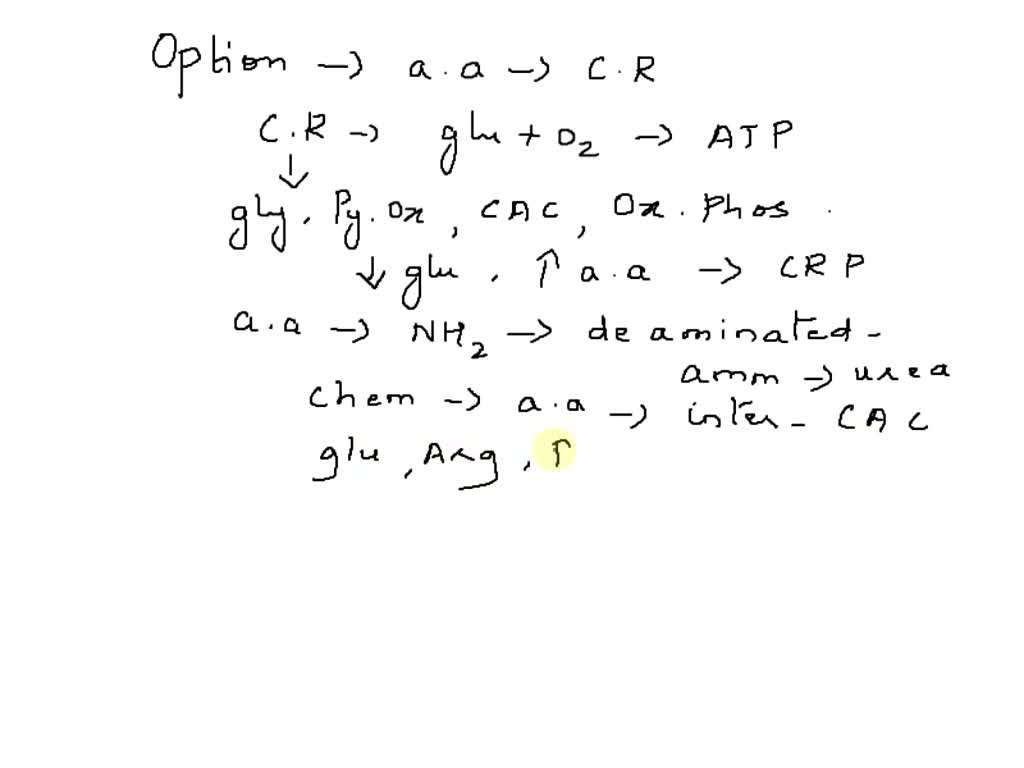 Option → a.a → C.R
C.R → glu + O2 → ATP
↓
gly, Py.Ox, CAC, Ox.Phos.
↓ glu, ↑ a.a → CRP
a.a → NH2 → deaminated-
amm → urea
Chem → a.a → inter- CAC
glu, Arg,